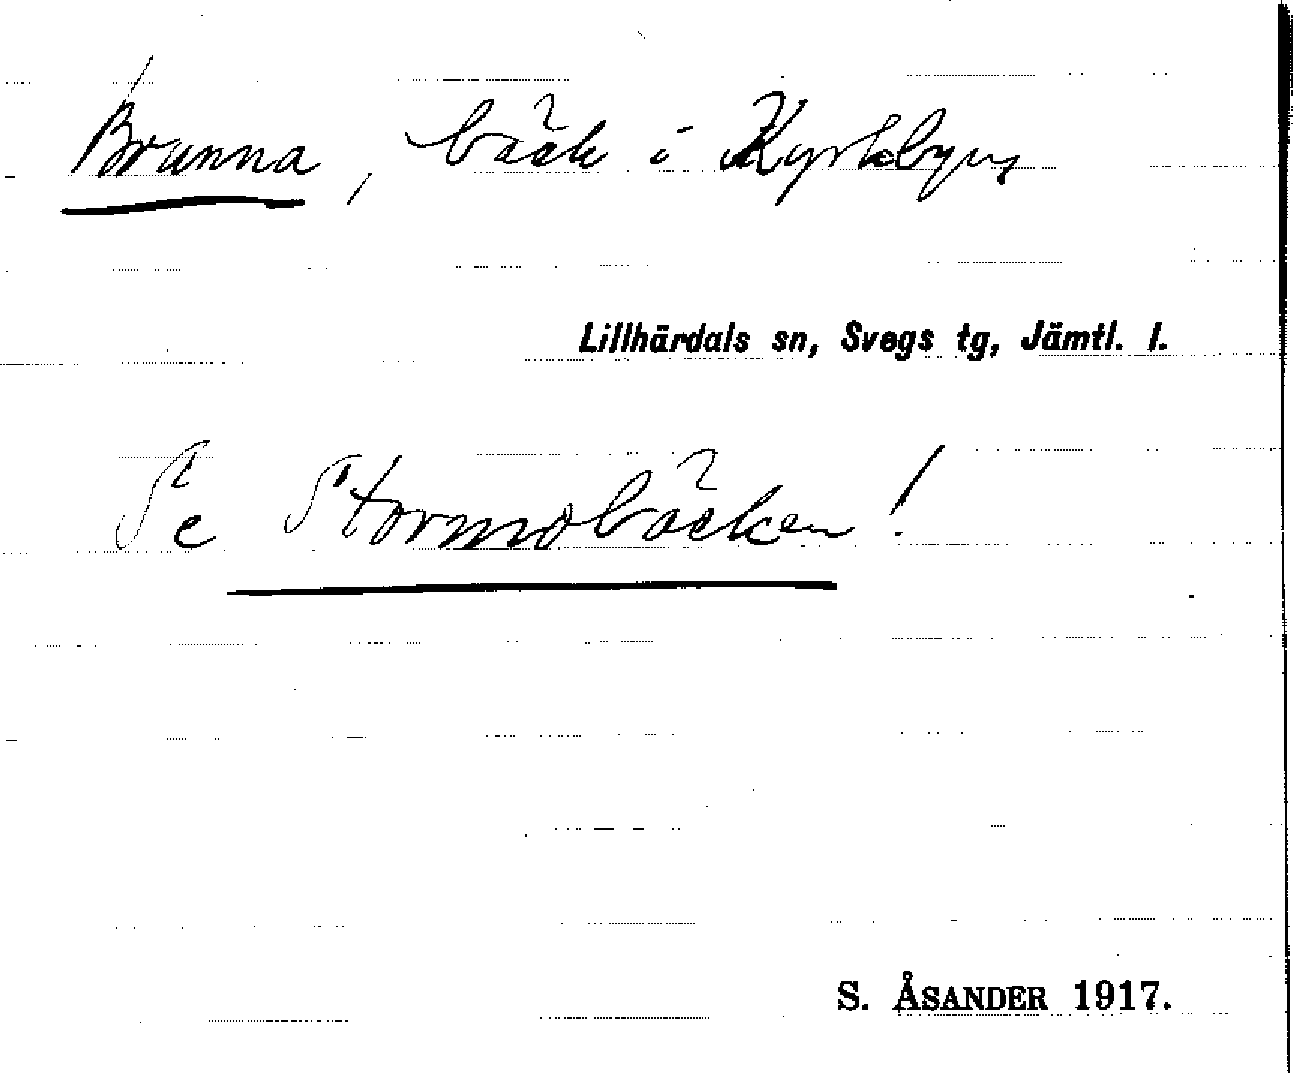 Brunna, bäck i Kyrkbyn
Lillhärdals sn, Svegs tg, Jämtl. l.
Se Stormobäcken!
S. ÅSANDER 1917.